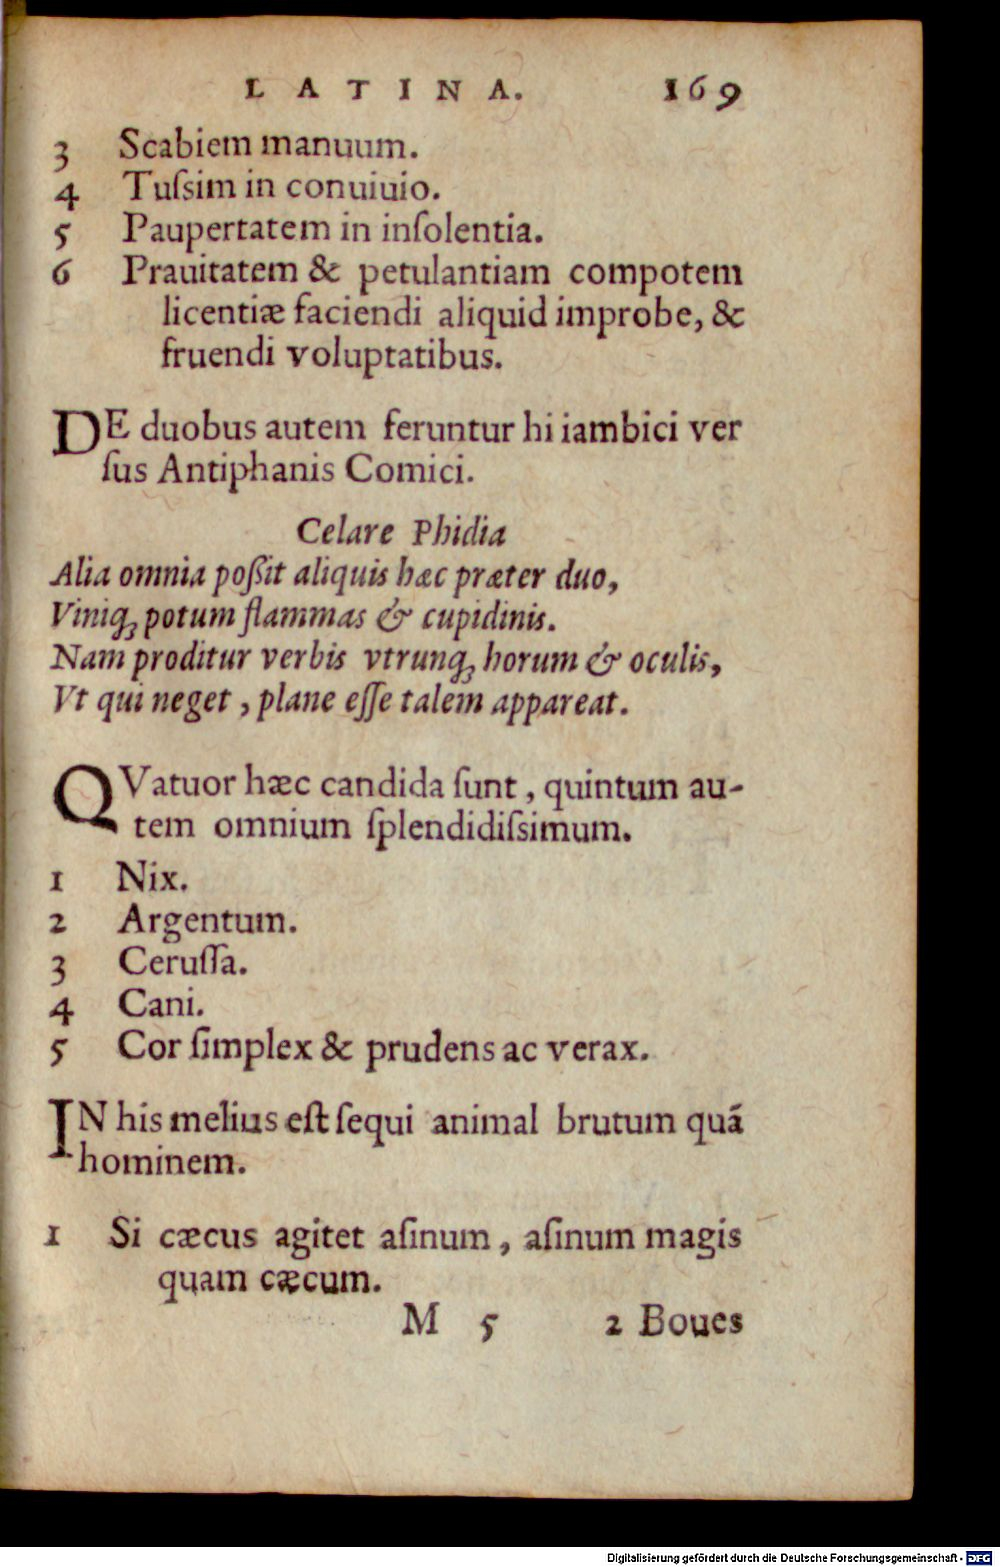 LATINA. 169
3 Scabiem manuum.
4 Tuſsim in conuiuio.
5 Paupertatem in inſolentia.
6 Prauitatem & petulantiam compotem
licentiæ faciendi aliquid improbe, &
fruendi voluptatibus.
DE duobus autem feruntur hi iambici ver
ſus Antiphanis Comici.
Celare Phidia
Alia omnia poſsit aliquis hæc præter duo,
Viniq́; potum flammas & cupidinis.
Nam proditur verbis vtrunq́; horum & oculis,
Vt qui neget, plane eſſe talem appareat.
QVatuor hæc candida ſunt, quintum au-
tem omnium ſplendidiſsimum.
1 Nix.
2 Argentum.
3 Ceruſſa.
4 Cani.
5 Cor ſimplex & prudens ac verax.
IN his melius eſt ſequi animal brutum quã
hominem.
1 Si cæcus agitet aſinum, aſinum magis
quam cæcum.
M 5 2 Boues
Digitalisierung gefördert durch die Deutsche Forschungsgemeinschaft - DFG